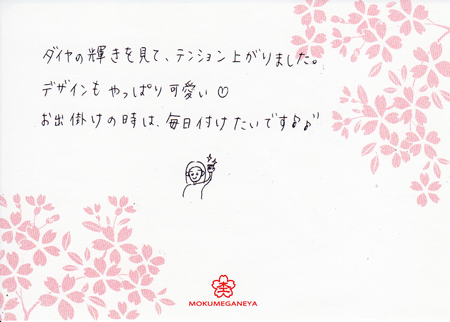 ダイヤの輝きを見て、テンション上がりました。
デザインも やっぱり可愛い♡
お出掛けの時は、毎日付けたいです♪♪
MOKUMEGANEYA